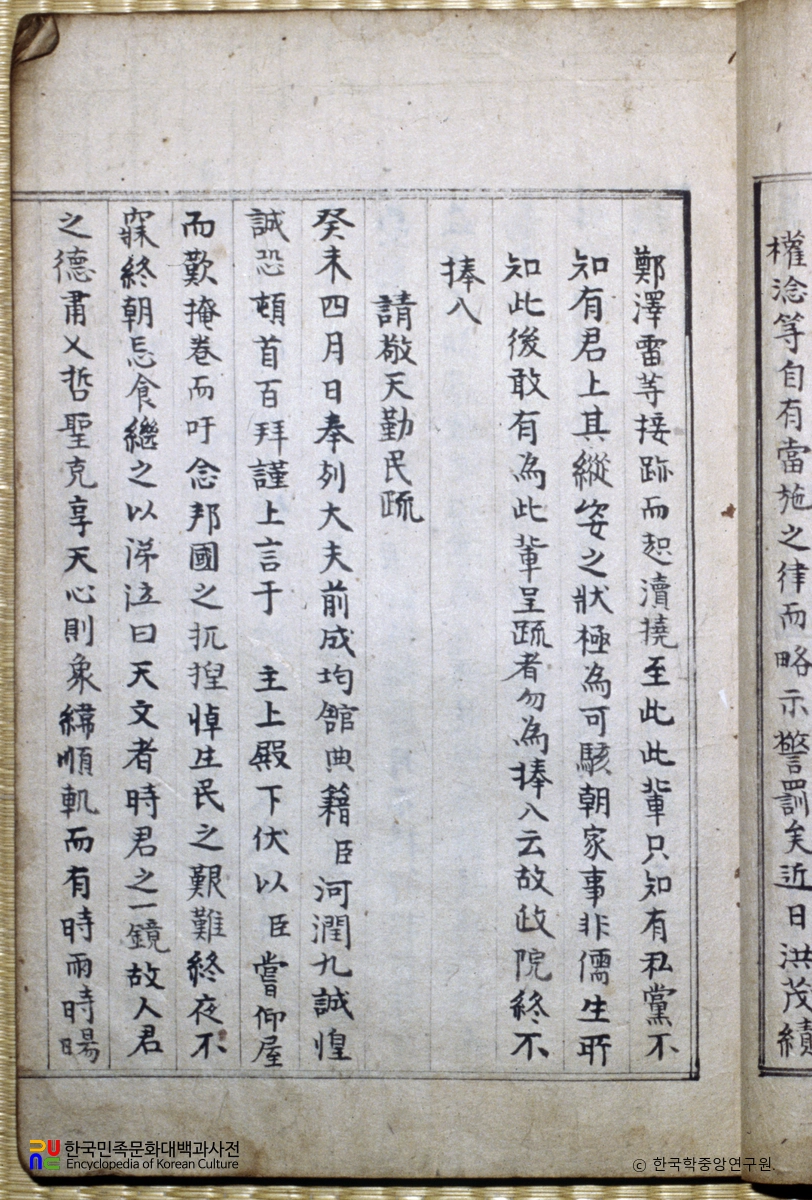 權淰等自有當施之律而略示警罰矣近日洪茂績
鄭澤雷等接跡而起瀆撓至此此輩只知有私黨不
知有君上其縱恣之狀極為可駭朝家事非儒生所
知此後敢有為此輩呈疏者勿為捧入云故政院終不
捧入
請敬天勤民疏
癸未四月日奉列大夫前成均館典籍臣河潤九誠惶
誠恐頓首百拜謹上言于 主上殿下伏以臣嘗仰屋
而歎掩卷而吁念邦國之扤揑悼生民之艱難終夜不
寐終朝忘食繼之以涕泣曰天文者時君之一鏡故人君
之德肅乂哲聖克享天心則象緯順軌而有時雨時暘
한국민족문화대백과사전
Encyclopedia of Korean Culture
ⓒ 한국학중앙연구원.